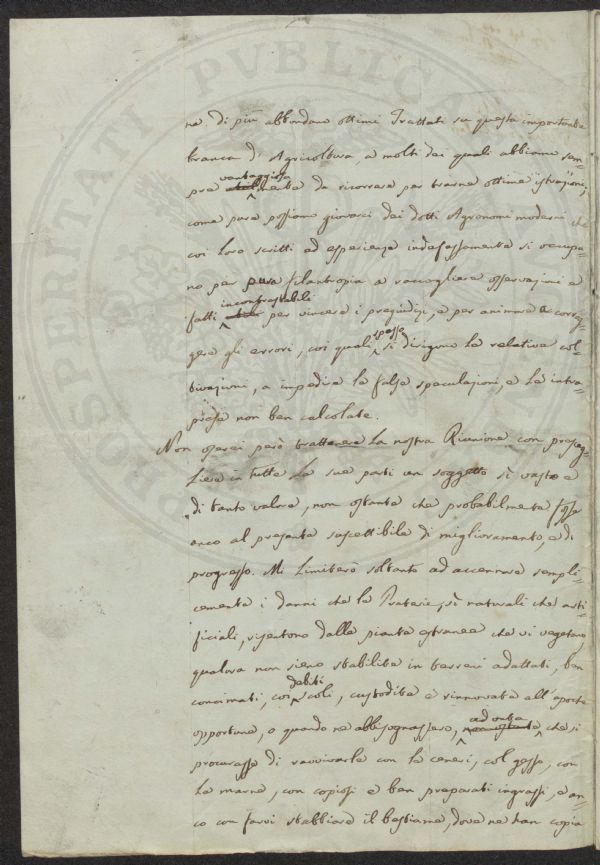 ne. di più abbondano ottimi Trattati su questa importante
branca d'Agricoltura, a molti dei quali abbiamo sem-
pre vantaggiosa mente da ricorrere per trarne ottime istruzioni,
come pure possiamo giovarci dei dotti Agronomi moderni che
coi loro scritti ed esperienze indefessamente si occupa-
no per pura filantropia a raccogliere osservazioni e
fatti incontrastabili per vincere i pregiudizj, e per animare a corre-
gere gli errori, coi quali spesso si dirigono le relative col-
tivazioni, a impedire le false speculazioni, e le intra-
prese non ben calcolate.
Non oserei però trattenere la nostra Riunione con presceg-
liere in tutte le sue parti un soggetto sì vasto e
di tanto valore, non ostante che probabilmente fosse
anco al presente suscettibile di miglioramento, e di
progresso. Mi limiterò soltanto ad accennare sempli-
cemente i danni che le Praterie, sì naturali che arti-
ficiali, risentono dalle piante estranee che vi vegetano,
qualora non sieno stabilite in terreni adattati, ben
concimati, coi debiti scoli, custodite e rinnovate all'epoche
opportune, o quando ne abbisognassero, ad onta che si
procurasse di ravvivarle con le ceneri, col gesso, con
la marna, con copiosi e ben preparati ingrassi, e an-
co con farvi stabbiare il bestiame, dove ne han copia
PROSPERITATI PUBLICAE